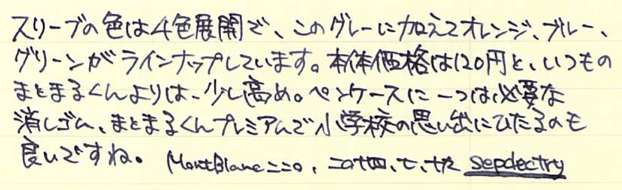 スリーブの色は4色展開で、このグレーに加えてオレンジ、ブルー、
グリーンがラインナップしています。本体価格は120円と、いつもの
まとまるくんよりは、少し高め。ペンケースに一つは必要な
消しゴム、まとまるくんプレミアムで小学校の思い出にひたるのも
良いですね。 MontBlanc ニニ〇、二〇十四、七、廿九 sepdectry